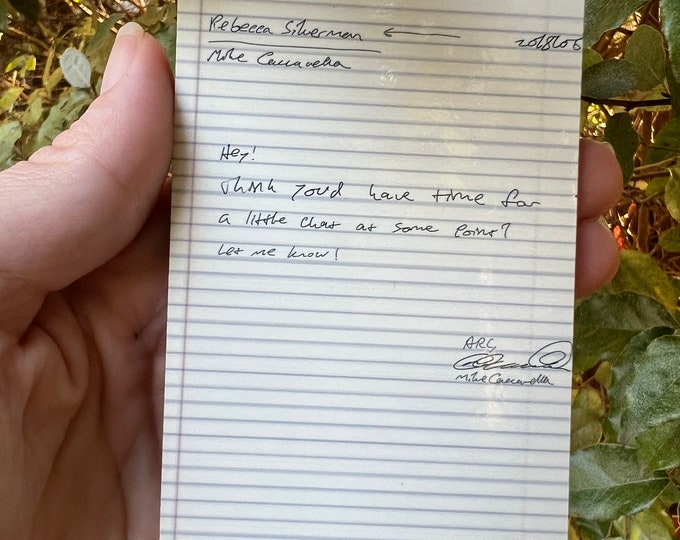 Rebecca Silverman
Mike Caccavella
Hey!
Think you'd have time for
a little chat at some point?
Let me know!
Mike Caccavella